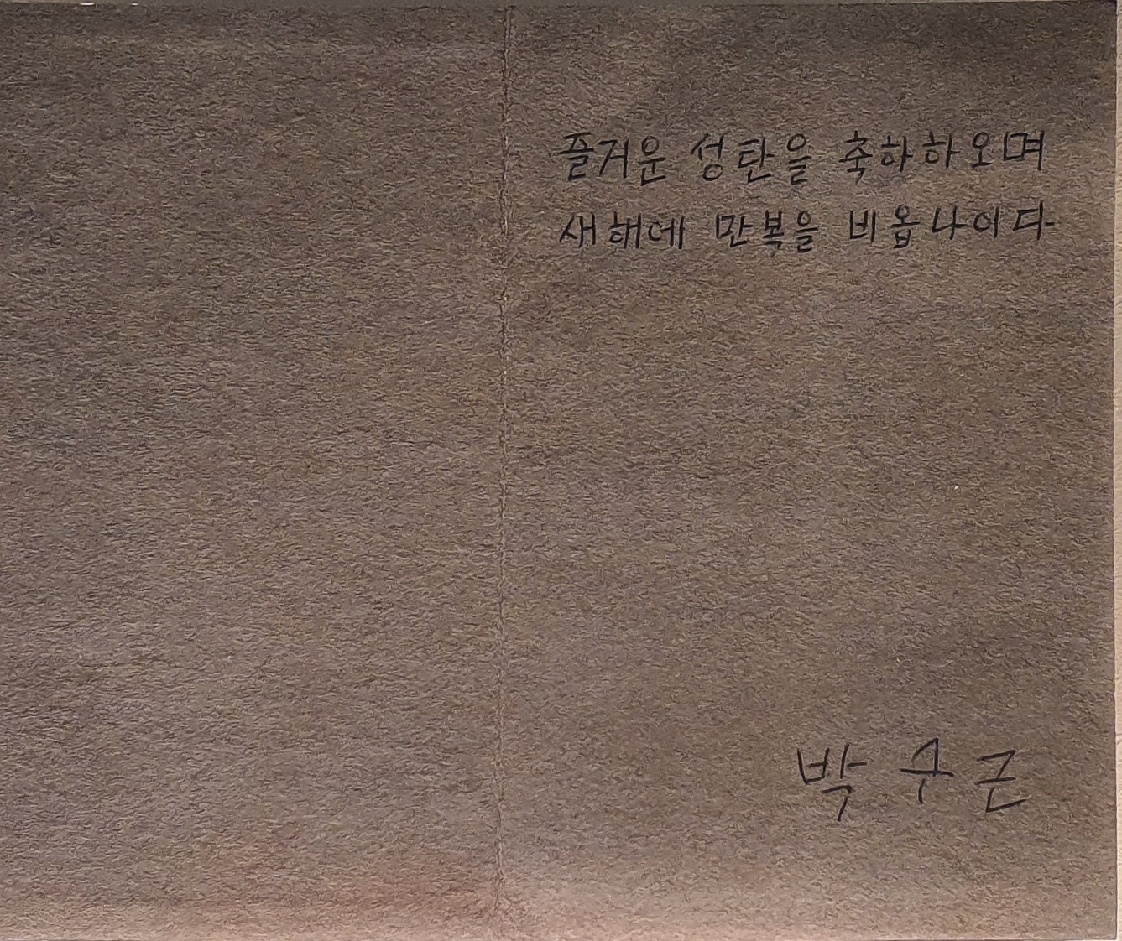 즐거운 성탄을 축하하오며
새해에 만복을 비옵나이다
박수근